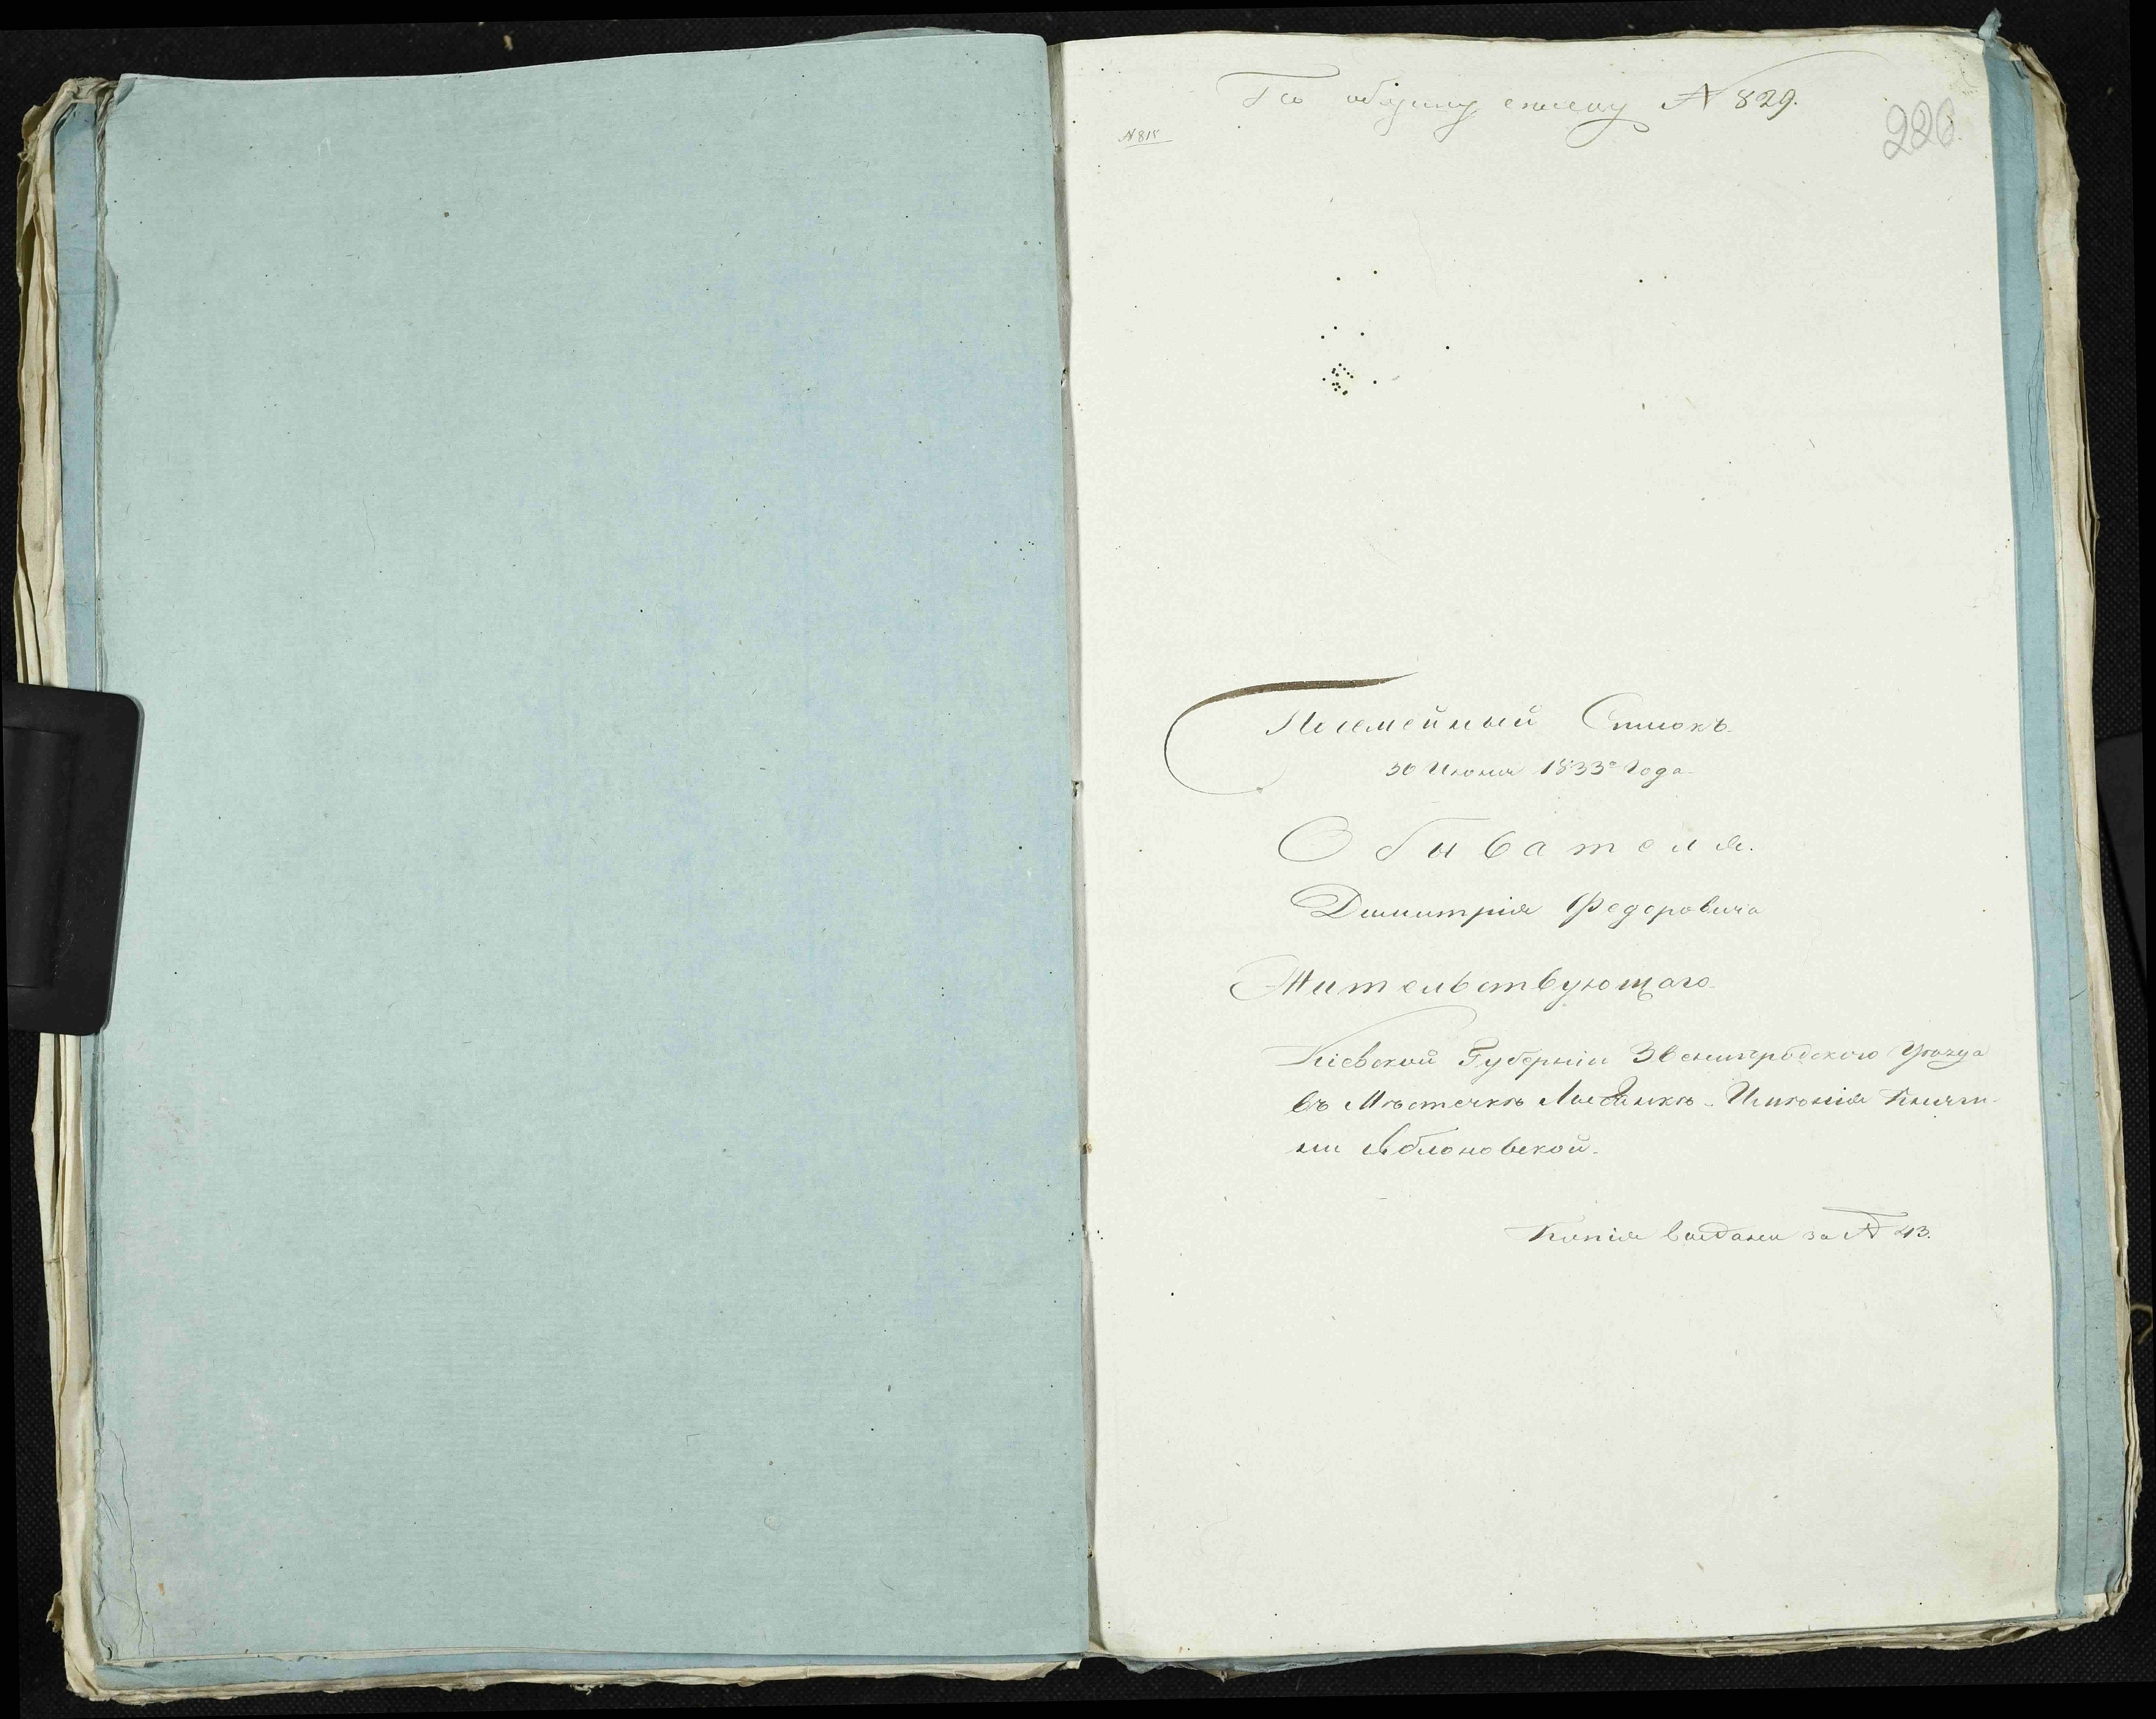 По общему списку № 829.
№ 815
226
Посемейный Списокъ.
30 Июня 1833го Года
Обывателя.
Димитрія Федоровича
Жительствующаго
Кіевской Губерніи Звенигородского Уѣзда
въ Мѣстечкѣ Лысянкѣ - Имѣнія Княги-
ни Яблоновской.
Копія выдана за № 43.